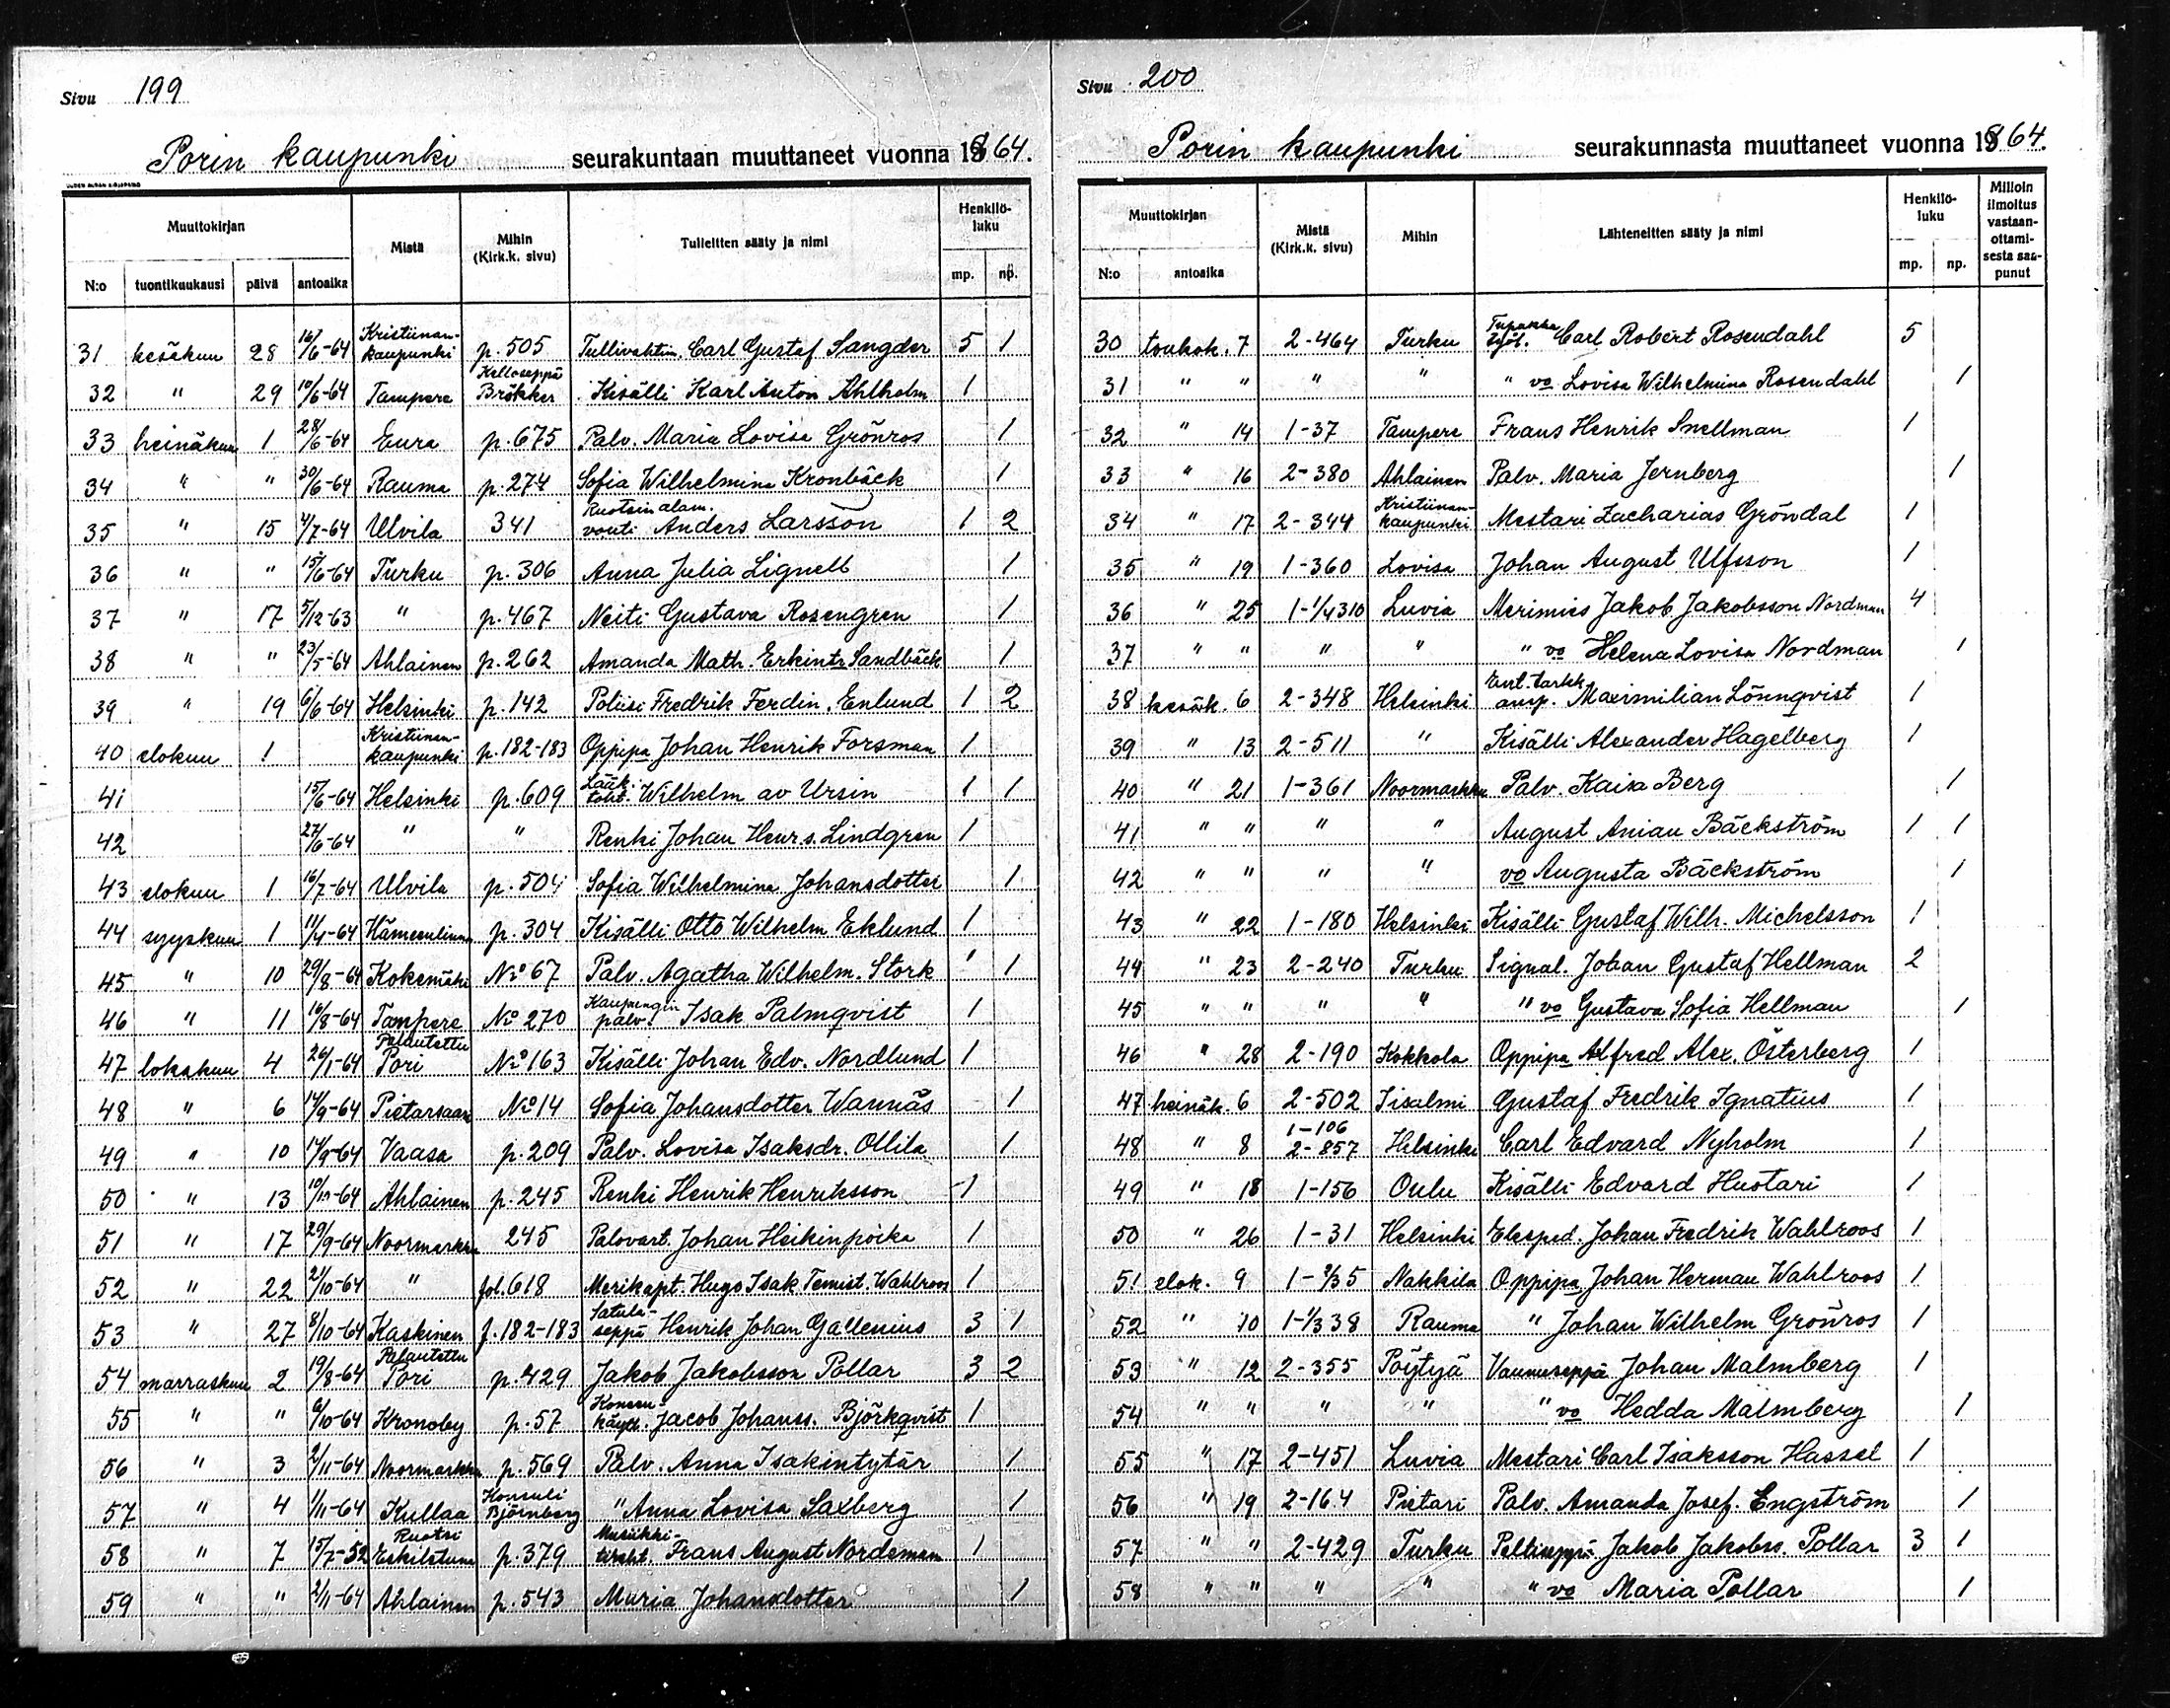 Sivu 199
Porin kaupunki seurakuntaan muuttaneet vuonna 1864.
Muuttokirjan Mistä Mihin (Kirk.k. sivu) Tulleitten sääty ja nimi Henkilöluku
N:o tuontikuukausi päivä antoaika mp. np.
31 kesäkuu 28 16/6-64 Kristiinan-kaupunki p. 505 Tullivahtim. Carl Gustaf Sangder 5 1
32 " 29 10/6-64 Tampere Kelloseppä Bröcker Kisälli Karl Anton Ahlholm 1
33 heinäkuu 1 28/6-64 Eura p. 675 Palv. Maria Lovisa Grönros 1
34 " " 30/6-64 Rauma p. 274 Sofia Wilhelmina Kronbäck 1
35 " 15 4/7-64 Ulvila 341 Ruotsin alam. vouti Anders Larsson 1 2
36 " " 15/6-64 Turku p. 306 Anna Julia Lignell 1
37 " 17 5/12-63 " p. 467 Neiti Gustava Rosengren 1
38 " " 23/5-64 Ahlainen p. 262 Amanda Math. Erkintr Sandbäck 1
39 " 19 6/6-64 Helsinki p. 142 Poliisi Fredrik Ferdin. Enlund 1 2
40 elokuu 1 Kristiinan-kaupunki p. 182-183 Oppipa Johan Henrik Forsman 1
41 15/6-64 Helsinki p. 609 Lääk. toht. Wilhelm av Ursin 1 1
42 27/6-64 " " Renki Johan Henr.s. Lindgren 1
43 elokuu 1 16/7-64 Ulvila p. 504 Sofia Wilhelmina Johansdotter 1
44 syyskuu 1 11/4-64 Hämeenlinna p. 304 Kisälli Otto Wilhelm Eklund 1
45 " 10 29/8-64 Kokemäki No 67 Palv. Agatha Wilhelm. Stork " 1
46 " 11 16/8-64 Tampere No 270 Kaupungin palv. Isak Palmqvist 1
47 lokakuu 4 26/1-64 Palautettu Pori No 163 Kisälli Johan Edv. Nordlund 1
48 " 6 14/9-64 Pietarsaari No 14 Sofia Johansdotter Wannäs 1
49 " 10 14/9-64 Vaasa p. 209 Palv. Lovisa Isaksdr. Ollila 1
50 " 13 10/10-64 Ahlainen p. 245 Renki Henrik Henriksson 1
51 " 17 29/9-64 Noormarkku 245 Palovart. Johan Heikinpoika 1
52 " 22 21/10-64 " fol. 618 Merikapt. Hugo Isak Temist. Wahlroos 1
53 " 27 8/10-64 Kaskinen f. 182-183 Satula-seppä Henrik Johan Gallenius 3 1
54 marraskuu 2 19/8-64 Palautettu Pori p. 429 Jakob Jakobsson Pollar 3 2
55 " " 6/10-64 Kronoby p. 57 Jacob Johanss. Björkqvist 1
56 " 3 2/11-64 Noormarkku p. 569 Palv. Anna Isakintytär 1
57 " 4 1/11-64 Kullaa Konsuli Björnberg " Anna Lovisa Saxberg 1
58 " 7 15/7-52 Ruotsi Eskilstuna p. 379 Musiikki-tireht. Frans August Nordeman 1
59 " " 2/11-64 Ahlainen p. 543 Maria Johansdotter 1
Sivu 200
Porin kaupunki seurakunnasta muuttaneet vuonna 1864.
Muuttokirjan Mistä (Kirk.k. sivu) Mihin Lähteneitten sääty ja nimi Henkilöluku Milloin ilmoitus vastaanottamisesta saapunut
N:o antoaika mp. np.
30 toukok. 7 2-464 Turku Tupakka työl. Carl Robert Rosendahl 5
31 " " " " " vo Lovisa Wilhelmina Rosendahl 1
32 " 14 1-37 Tampere Frans Henrik Snellman 1
33 " 16 2-380 Ahlainen Palv. Maria Jernberg 1
34 " 17 2-344 Kristiinan-kaupunki Mestari Zacharias Gröndal 1
35 " 19 1-360 Lovisa Johan August Ulfsson 1
36 " 25 1-1/4310 Luvia Merimies Jakob Jakobsson Nordman 4
37 " " " " " vo Helena Lovisa Nordman 1
38 kesäk. 6 2-348 Helsinki Ent. tarkk. Maximilian Lönnqvist 1
39 " 13 2-511 " Kisälli Alexander Hagelberg 1
40 " 21 1-361 Noormarkku Palv. Kaisa Berg 1
41 " " " " August Anian Bäckström 1 1
42 " " " " vo Augusta Bäckström 1
43 " 22 1-180 Helsinki Kisälli Gustaf Wilh. Michelsson 1
44 " 23 2-240 Turku Signal. Johan Gustaf Hellman 2
45 " " " " " vo Gustava Sofia Hellman 1
46 " 28 2-190 Kokkola Oppipa Alfred Alex. Österberg 1
47 heinäk. 6 2-502 Iisalmi Gustaf Fredrik Ignatius 1
48 " 8 1-106 2-857 Helsinki Carl Edvard Nyholm 1
49 " 18 1-156 Oulu Kisälli Edvard Huotari 1
50 " 26 1-31 Helsinki Eksped. Johan Fredrik Wahlroos 1
51 elok. 9 1-2/35 Nakkila Oppipa Johan Herman Wahlroos 1
52 " 10 1-1/338 Rauma " Johan Wilhelm Grönros 1
53 " 12 2-355 Pöytyä Vaunuseppä Johan Malmberg 1
54 " " " " " vo Hedda Malmberg 1
55 " 17 2-451 Luvia Mestari Carl Isaksson Hassel 1
56 " 19 2-164 Pietari Palv. Amanda Josef. Engström 1
57 " " 2-429 Turku Peltiseppä Jakob Jakobss. Pollar 3 1
58 " " " " " vo Maria Pollar 1